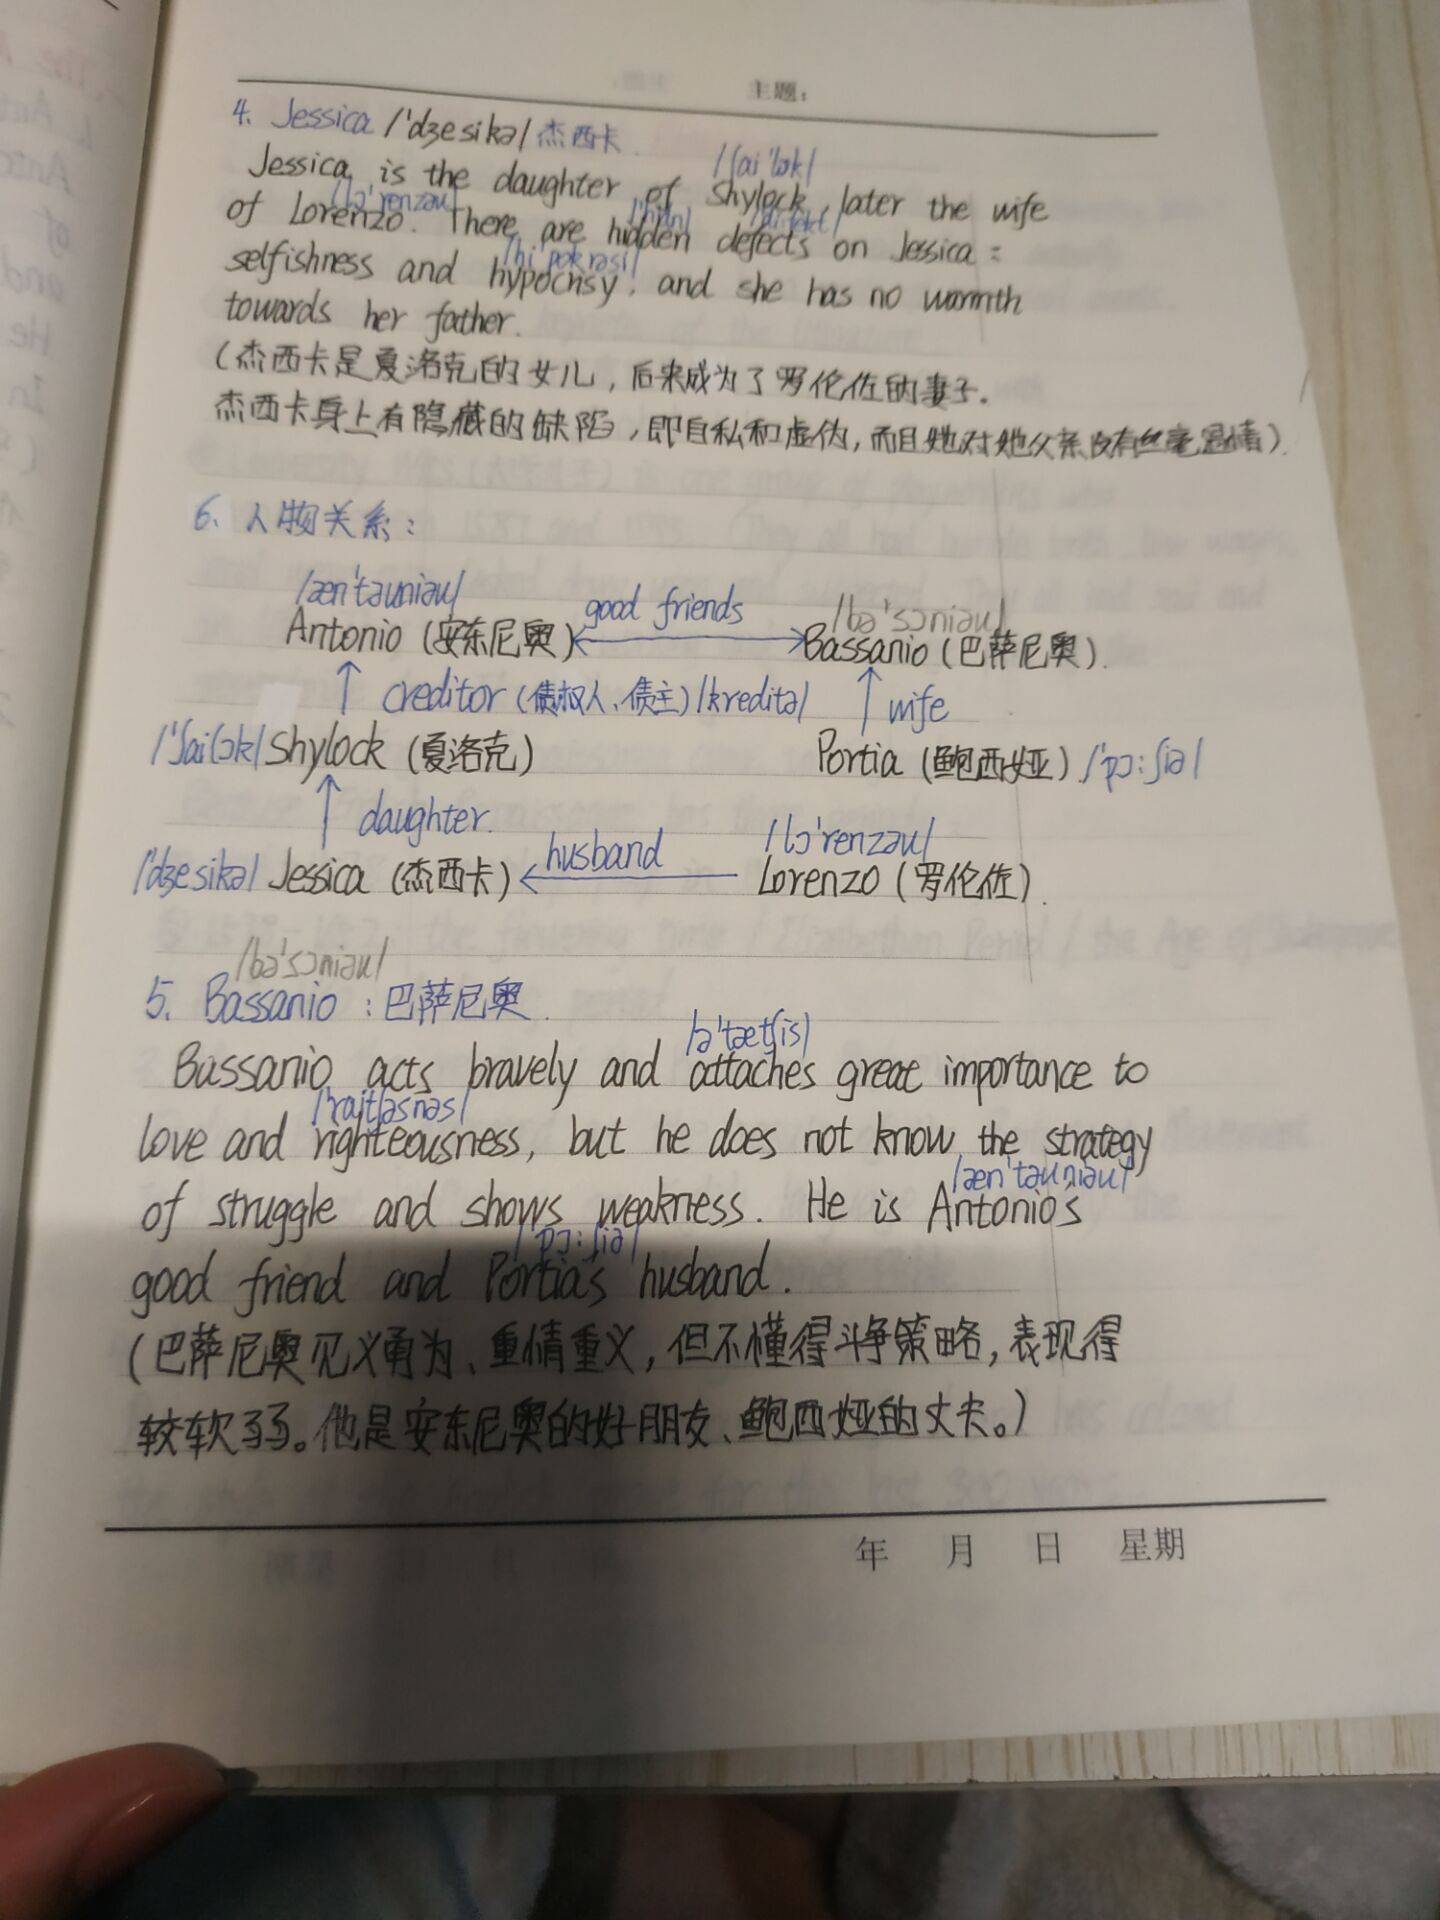 主题:
4. Jessica /'dʒesikə/ 杰西卡.
/ʃai'lɔk/
Jessica is the daughter of Shylock, later the wife
/lɔ'renzəu/
of Lorenzo. There are hidden defects on Jessica:
selfishness and hypocrisy, and she has no warmth
towards her father.
(杰西卡是夏洛克的女儿,后来成为了罗伦佐的妻子.
杰西卡身上有隐藏的缺陷,即自私和虚伪,而且她对她父亲没有丝毫温情).
6. 人物关系:
/æn'təuniəu/ good friends /bə'sɔniəu/
Antonio (安东尼奥) Bassanio (巴萨尼奥).
creditor (债权人、债主) /kreditə/ wife
/'ʃailɔk/ Shylock (夏洛克) Portia (鲍西娅) /'pɔ:ʃiə/
daughter.
husband /lɔ'renzəu/
/'dʒesikə/ Jessica (杰西卡) Lorenzo (罗伦佐).
/bə'sɔniəu/
5. Bassanio : 巴萨尼奥.
/ə'tætʃis/
Bassanio acts bravely and attaches great importance to
/'raitʃəsnəs/
love and righteousness, but he does not know the strategy
/æn'təuniəu/
of struggle and shows weakness. He is Antonio's
/'pɔ:ʃiə/
good friend and Portia's husband.
(巴萨尼奥见义勇为、重情重义,但不懂得斗争策略,表现得
较软弱。他是安东尼奥的好朋友、鲍西娅的丈夫。)
年 月 日 星期